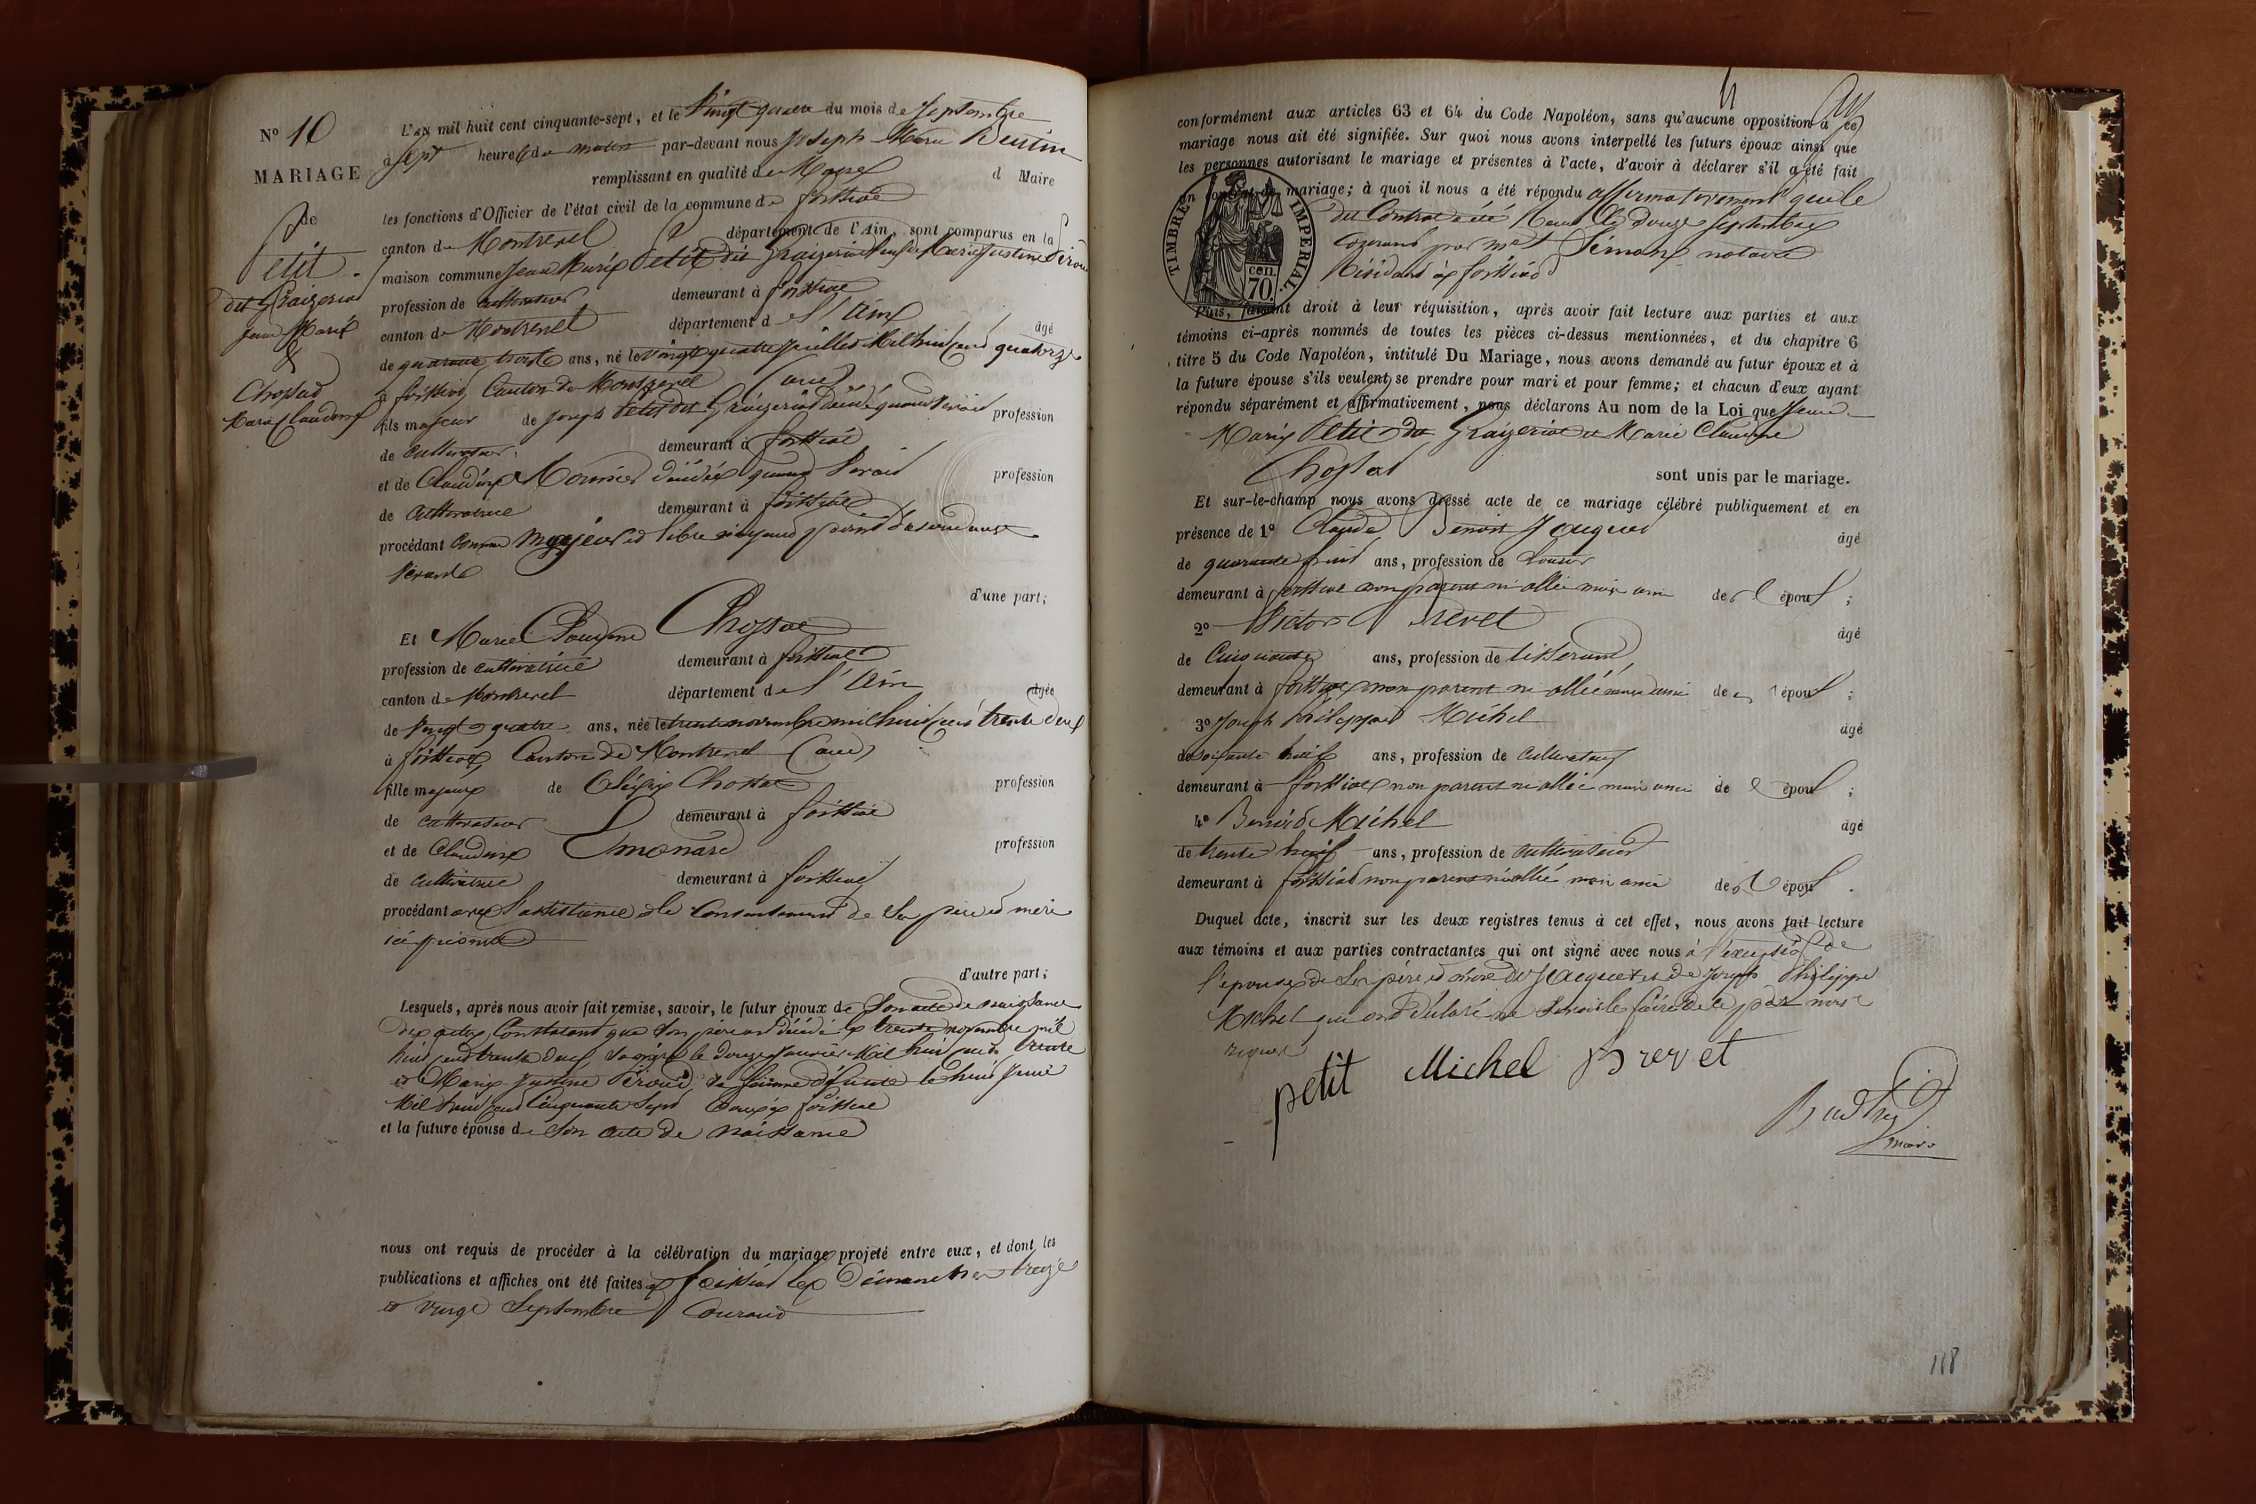 N° 10
MARIAGE
de
Petit
dit Graizeriat
Jean Marie
&
Chossat
Marie Claudine
L'an mil huit cent cinquante-sept, et le vingt quatre du mois de septembre
à sept heures du matin par-devant nous Joseph Marie
remplissant en qualité de Maire d Maire
les fonctions d'Officier de l'état civil de la commune de foissiat
canton de Montrevel département de l'Ain, sont comparus en la
maison commune Jean Marie Petit dit Graizeriat veuf de Marie Justine Péroud
profession de cultivateur demeurant à foissiat
canton de Montrevel département de l'Ain âgé
de quarante trois ans, né le vingt quatre juillet Mil huit cent quatorze
à foissiat Canton de Montrevel (ain)
fils majeur de joseph Petit dit Graizeriat décédé quand vivait profession
de cultivateur demeurant à foissiat
et de Claudine Mounier décédée quand vivait profession
de cultivatrice demeurant à foissiat
procédant comme majeur et libre n'ayant point d'ascendants
vivants
d'une part;
Et Marie Claudine Chossat
profession de cultivatrice demeurant à foissiat
canton de Montrevel département de l'Ain âgée
de vingt quatre ans, née le trente novembre mil huit cent trente deux
à foissiat Canton de Montrevel (ain)
fille majeure de Chossat profession
de cultivateur demeurant à foissiat
et de Claudine profession
de cultivatrice demeurant à foissiat
procédant avec l'assistance et le consentement de ses père et mère
ici présents
d'autre part;
Lesquels, après nous avoir fait remise, savoir, le futur époux de son acte de naissance
des actes constatant que son père est décédé le trente novembre mil
huit cent trente deux sa mère le douze janvier Mil huit cent trente
et Marie Justine Péroud sa femme défunte le huit juin
Mil huit cent cinquante sept tous à foissiat
et la future épouse de son acte de naissance
nous ont requis de procéder à la célébration du mariage projeté entre eux, et dont les
publications et affiches ont été faites à foissiat les Dimanches treize
et vingt septembre Courant
conformément aux articles 63 et 64 du Code Napoléon, sans qu'aucune opposition à ce
mariage nous ait été signifiée. Sur quoi nous avons interpellé les futurs époux ainsi que
les personnes autorisant le mariage et présentes à l'acte, d'avoir à déclarer s'il a été fait
un contrat de mariage; à quoi il nous a été répondu affirmativement que le
dit Contrat a été Reçu le douze septembre
Courant par Me notaire
Résidant à foissiat
TIMBRE IMPERIAL.
70 cen.
Puis, faisant droit à leur réquisition, après avoir fait lecture aux parties et aux
témoins ci-après nommés de toutes les pièces ci-dessus mentionnées, et du chapitre 6
titre 5 du Code Napoléon, intitulé Du Mariage, nous avons demandé au futur époux et à
la future épouse s'ils veulent se prendre pour mari et pour femme; et chacun d'eux ayant
répondu séparément et affirmativement, nous déclarons Au nom de la Loi que Jean
Marie Petit dit Graizeriat et Marie Claudine
Chossat sont unis par le mariage.
Et sur-le-champ nous avons dressé acte de ce mariage célébré publiquement et en
présence de 1° Claude Benoit Jacquet âgé
de quarante huit ans, profession de
demeurant à foissiat non parent ni allié mais ami de l'époux;
2° Victor Brevet âgé
de Cinquante ans, profession de tisserand
demeurant à foissiat non parent ni allié mais ami de l'époux;
3° Joseph Philippe Michel âgé
de soixante huit ans, profession de cultivateur
demeurant à foissiat non parent ni allié mais ami de l'époux;
4° Benoit Michel âgé
de trente huit ans, profession de cultivateur
demeurant à foissiat non parent ni allié mais ami de l'époux.
Duquel acte, inscrit sur les deux registres tenus à cet effet, nous avons fait lecture
aux témoins et aux parties contractantes qui ont signé avec nous à l'exception de
l'épouse de ses père et mère de Jacquet et de Joseph Philippe
Michel qui ont déclaré ne savoir le faire de ce par nous
requis
petit Michel Brevet
maire
118